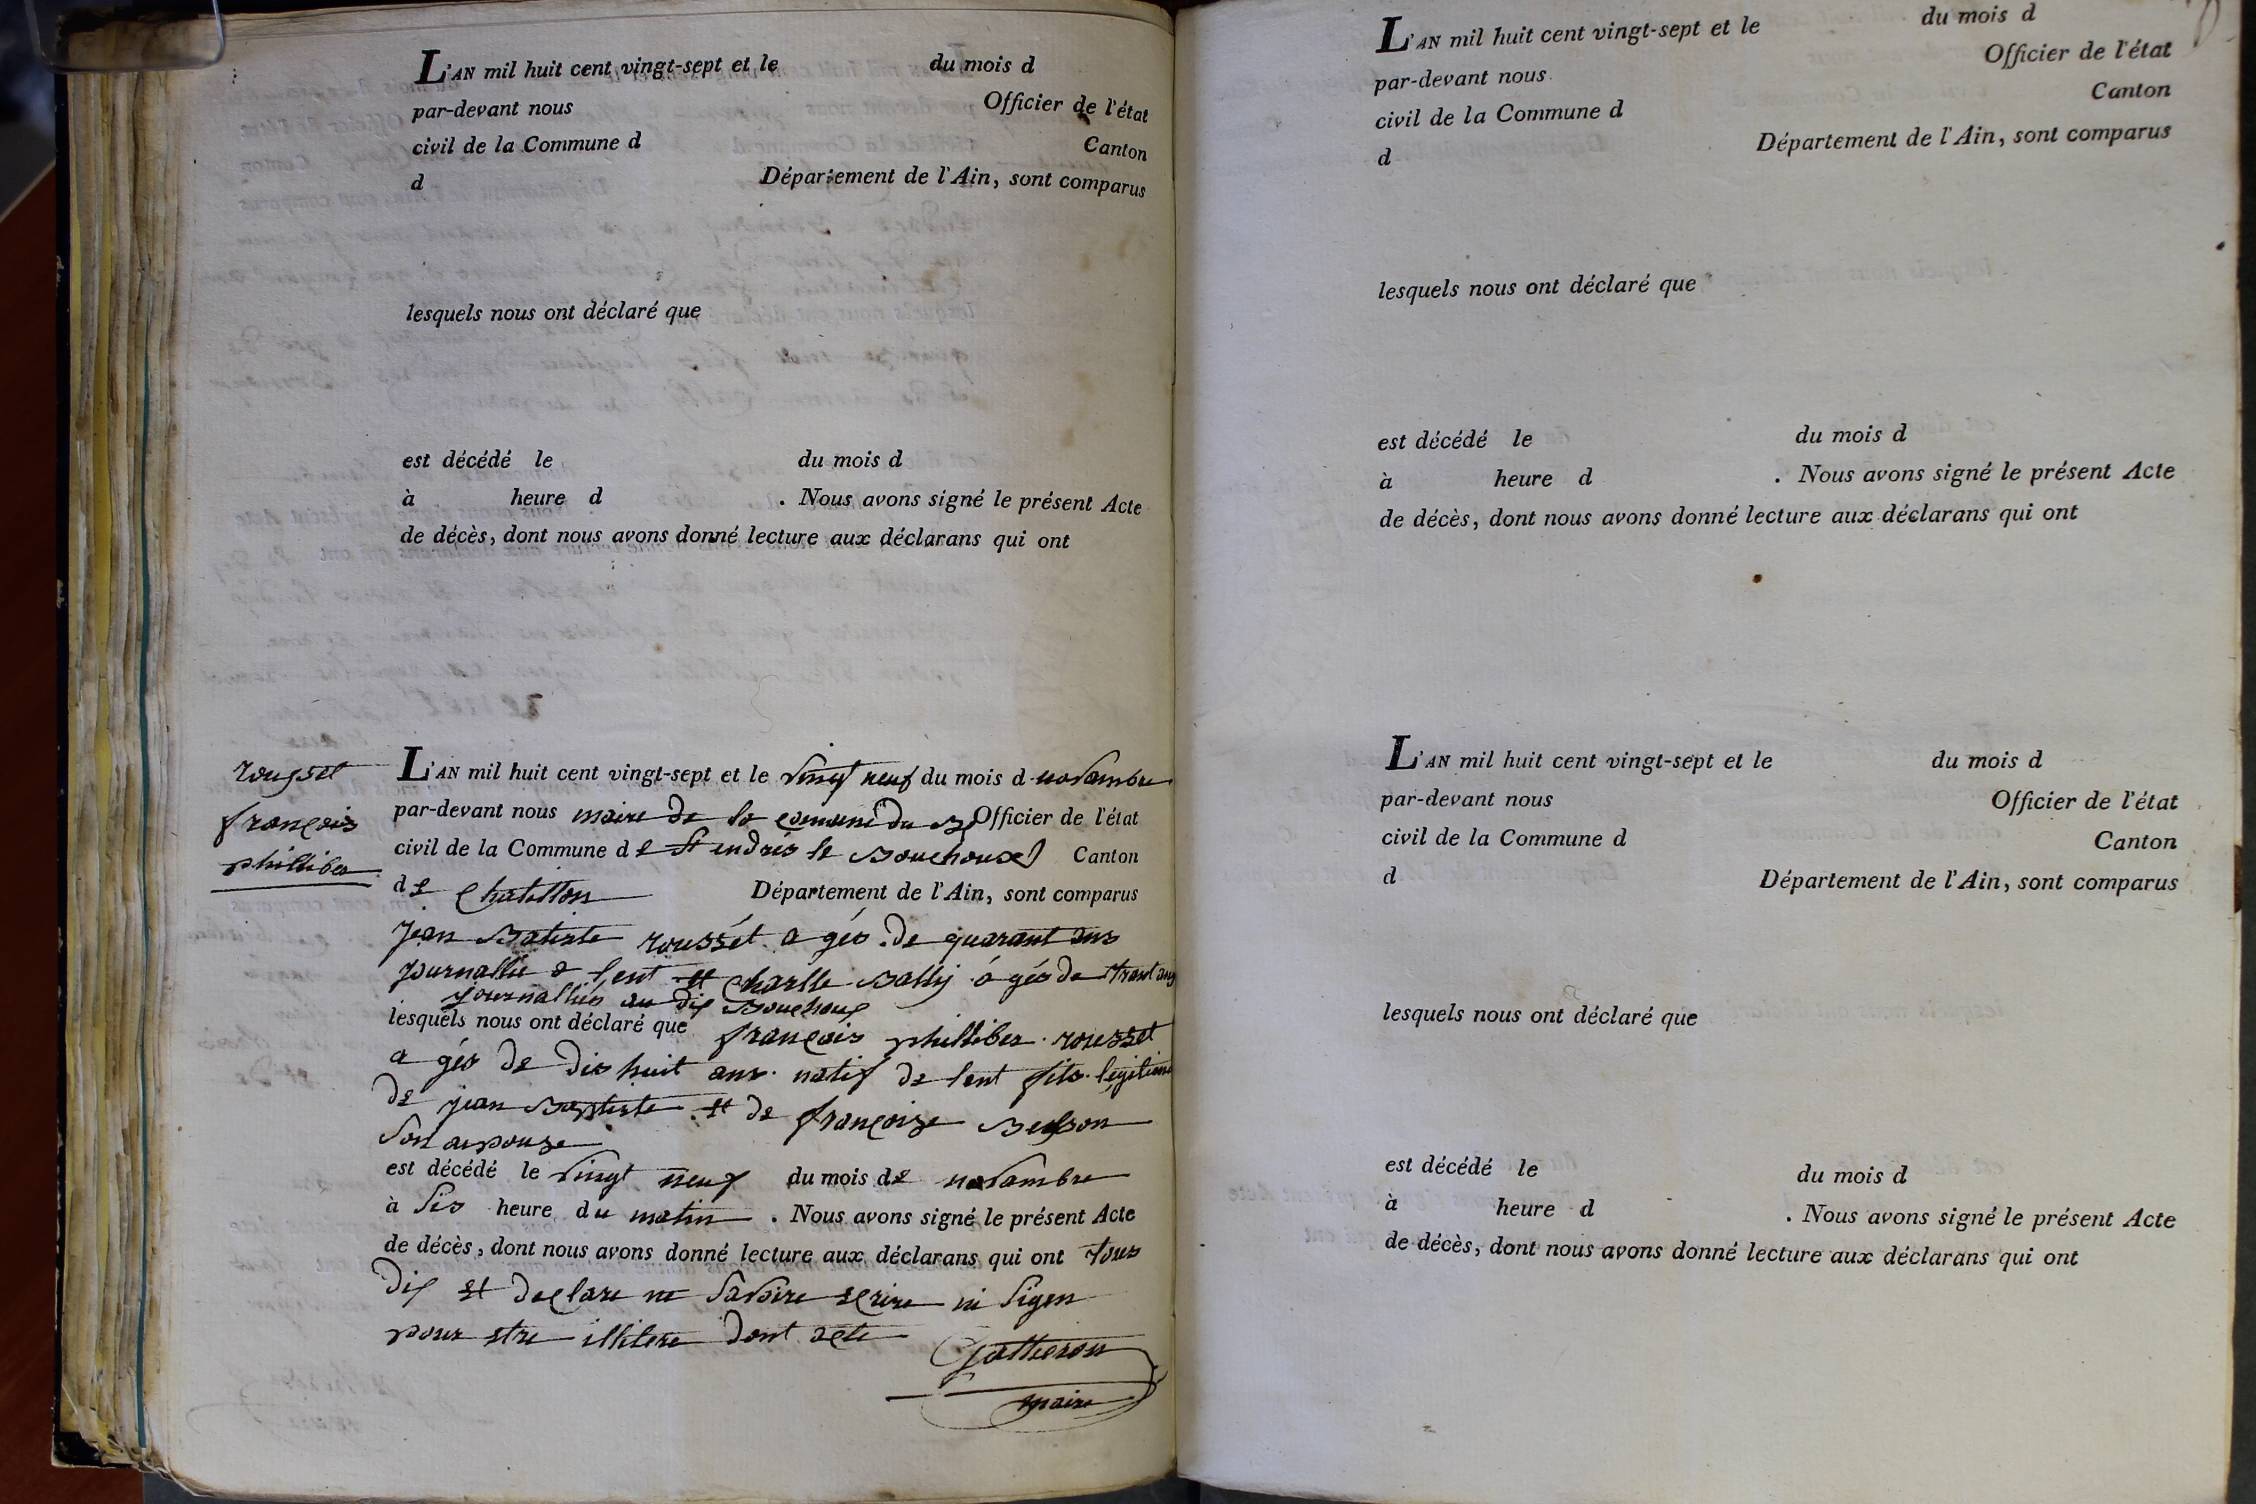 L'AN mil huit cent vingt-sept et le du mois d
par-devant nous Officier de l'état
civil de la Commune d Canton
d Département de l'Ain, sont comparus
lesquels nous ont déclaré que
est décédé le du mois d
à heure d . Nous avons signé le présent Acte
de décès, dont nous avons donné lecture aux déclarans qui ont
rousset
françois
philliber
L'AN mil huit cent vingt-sept et le vingt neuf du mois d novambre
par-devant nous maire de la comune du Officier de l'état
civil de la Commune de St endrés le Bouchoux Canton
de Chatillon Département de l'Ain, sont comparus
jean Batiste roussét a gés de quarant ans
journallié a lent et Charlle Bally á gés de trant ans
journalliés au dis Bouchoux
lesquels nous ont déclaré que françois philliber rousset
a gés de dis huit ans natif de lent fils légitime
de jean Baptiste et de françoise
son aepouse
est décédé le vingt neuf du mois de novambre
à sis heure du matin . Nous avons signé le présent Acte
de décès, dont nous avons donné lecture aux déclarans qui ont tous
dis et declare ne savoire ecrire ni signer
pour etre illitere dont acte
Gatheron
maire
L'AN mil huit cent vingt-sept et le du mois d
par-devant nous Officier de l'état
civil de la Commune d Canton
d Département de l'Ain, sont comparus
lesquels nous ont déclaré que
est décédé le du mois d
à heure d . Nous avons signé le présent Acte
de décès, dont nous avons donné lecture aux déclarans qui ont
L'AN mil huit cent vingt-sept et le du mois d
par-devant nous Officier de l'état
civil de la Commune d Canton
d Département de l'Ain, sont comparus
lesquels nous ont déclaré que
est décédé le du mois d
à heure d . Nous avons signé le présent Acte
de décès, dont nous avons donné lecture aux déclarans qui ont